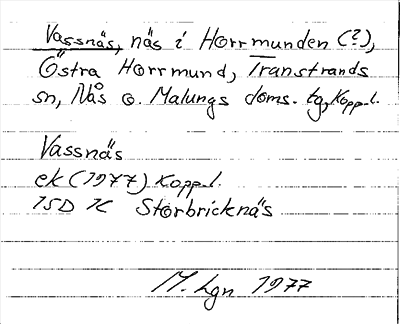 Vassnäs, näs i Horrmunden (?),
Östra Horrmund, Transtrands
sn, Nås o. Malungs doms. tg, Koppl.
Vassnäs
ek (1977) Koppl.
15D 1C Storbricknäs
M. Lgn 1977